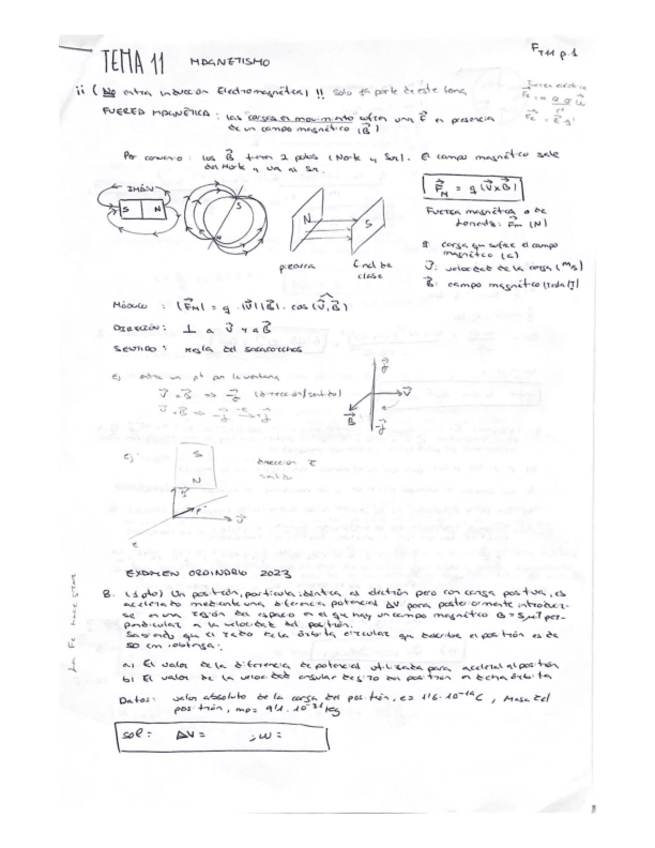 F T11 p.1
TEMA 11 MAGNETISMO
¡¡ (No entra inducción Electromagnética) !! solo 1ª parte de este tema
FUERZA MAGNÉTICA : las cargas en movimiento sufren una F en presencia
de un campo magnético (B)
Por convenio : los B tienen 2 polos (Norte y Sur). El campo magnético sale
del Norte y va al Sur.
IMÁN
S N
S
N S
pizarra final de
clase
F_M = q (V x B)
Fuerza magnética o de
: Fm (N)
carga que sufre el campo
magnético (C)
V: velocidad de la carga (m/s)
B: campo magnético (Tesla (T)
MÓDULO : |F_M| = q · |V||B| · cos (V, B)
DIRECCIÓN : ⊥ a V y a B
SENTIDO : Regla del sacacorchos
Ej entra un p+ por la ventana
(dirección/sentido)
V
B
Ej
S
N
B
V
dirección
sentido
EXAMEN ORDINARIO 2023
B. Un positrón, partícula idéntica al electrón pero con carga positiva, es
acelerado mediante una diferencia potencial ΔV para posteriormente introducir-
se en una región del espacio en el que hay un campo magnético B = 5 μT per-
pendicular a la velocidad del positrón.
Sabiendo que el radio de la órbita circular que describe el positrón es de
50 cm, obtenga:
a) El valor de la diferencia de potencial utilizada para acelerar al positrón
b) El valor de la velocidad angular de giro del positrón en dicha órbita
Datos: valor absoluto de la carga del positrón, e = 1'6 · 10^-19 C, Masa del
positrón, mp = 9'1 · 10^-31 kg
Sol : ΔV = ; ω =